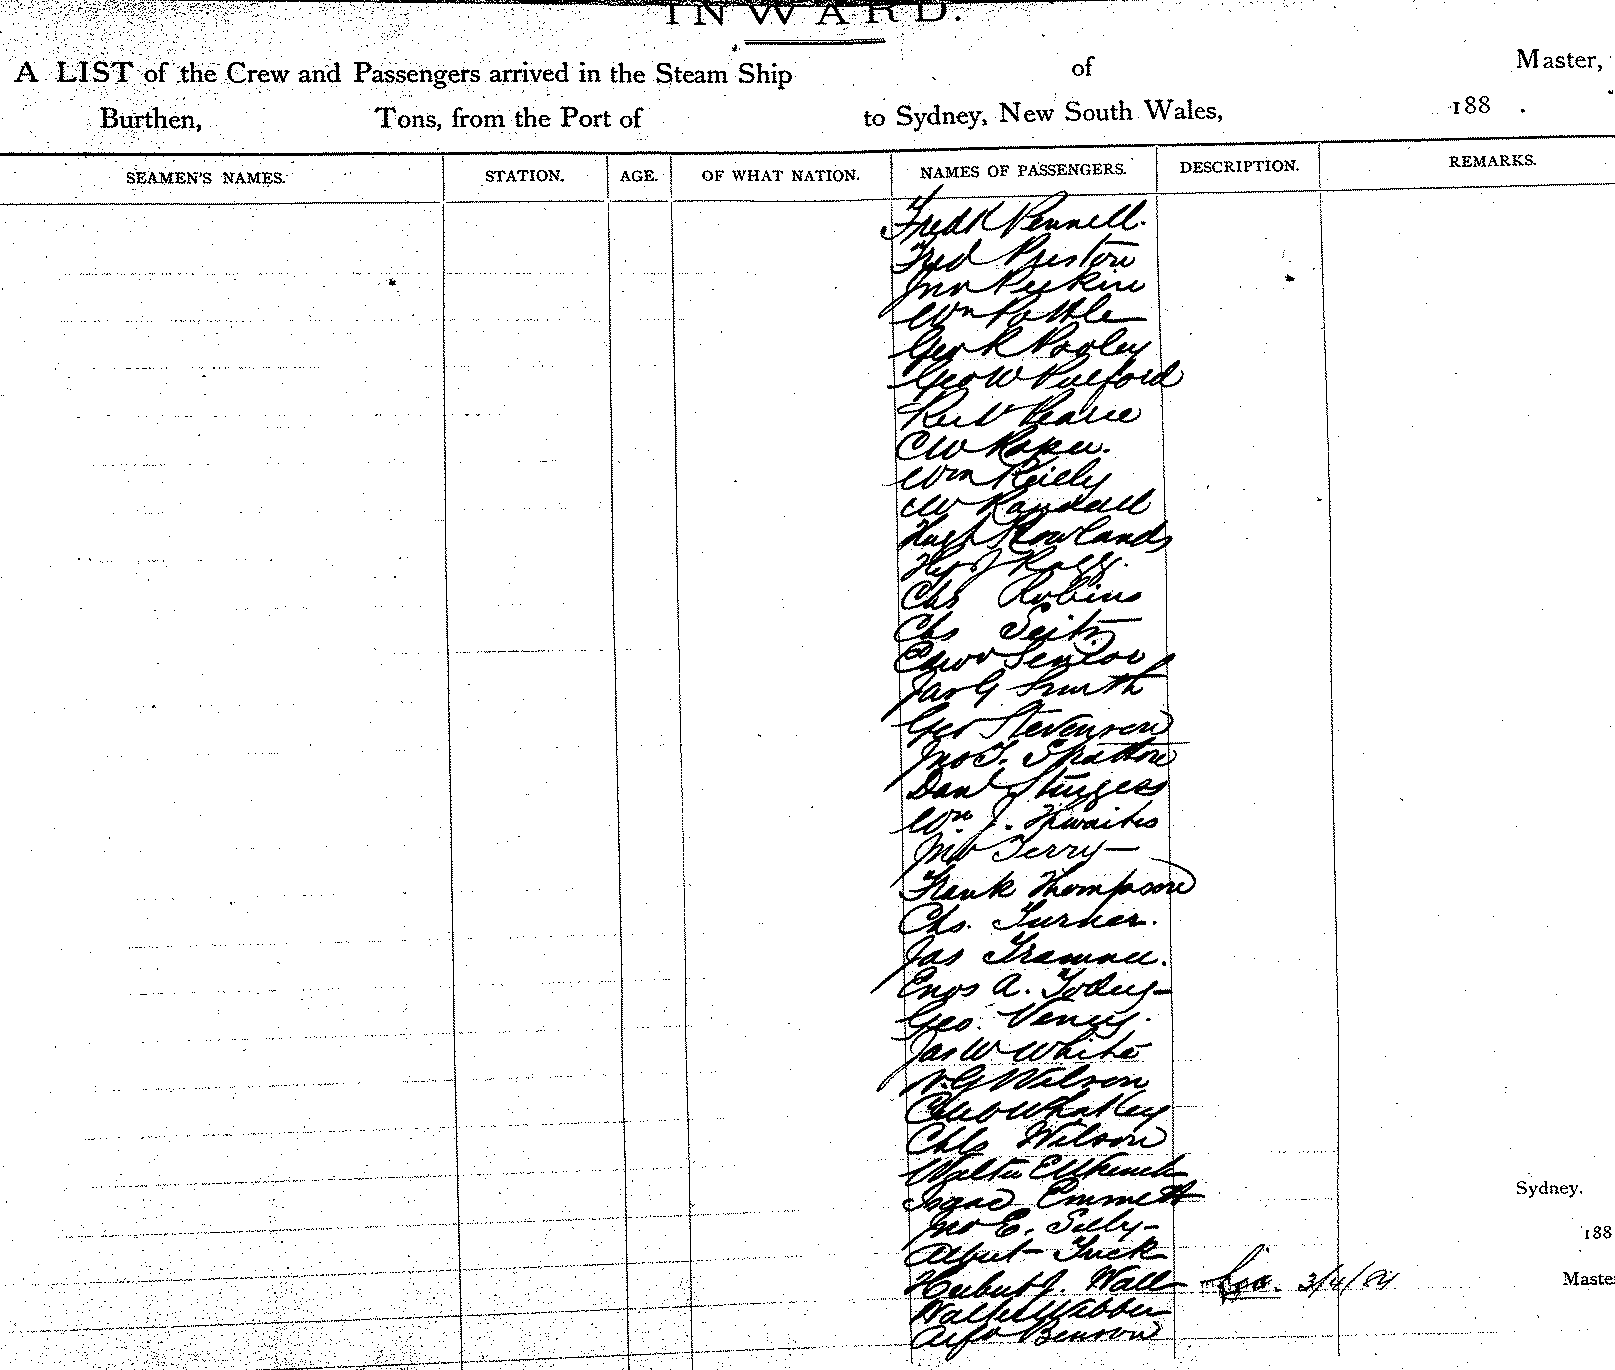 INWARD.
A LIST of the Crew and Passengers arrived in the Steam Ship of Master,
Burthen, Tons, from the Port of to Sydney, New South Wales, 188 .
SEAMEN'S NAMES. STATION. AGE. OF WHAT NATION. NAMES OF PASSENGERS. DESCRIPTION. REMARKS.
Fredk Pennell.
Fred Preston
Jno Perkin
Wm Pottle
Geo R Pooley
Geo W Pulford
Pearce
CW Roper.
Wm Reilly
CW Randall
Hugh Rowlands
Hy J
Chs Robins
Chs Seitz
Edwd Senior
Jas G Smith
Geo Stevenson
Jno T. Spratton
Danl Sturgess
Wm J. Thwaites
Jno Terry
Frank Thompson
Chs. Turner.
Jas
Enos A.
Geo.
Jas W White
V.G Wilson
Caleb Whatley
Chls Wilson
Walter
Isaac Emmett
Jno E. Silly
Albert Tuck
Herbert J. Wall
Walter Webber
Alfd Benson
Sydney.
188
Maste